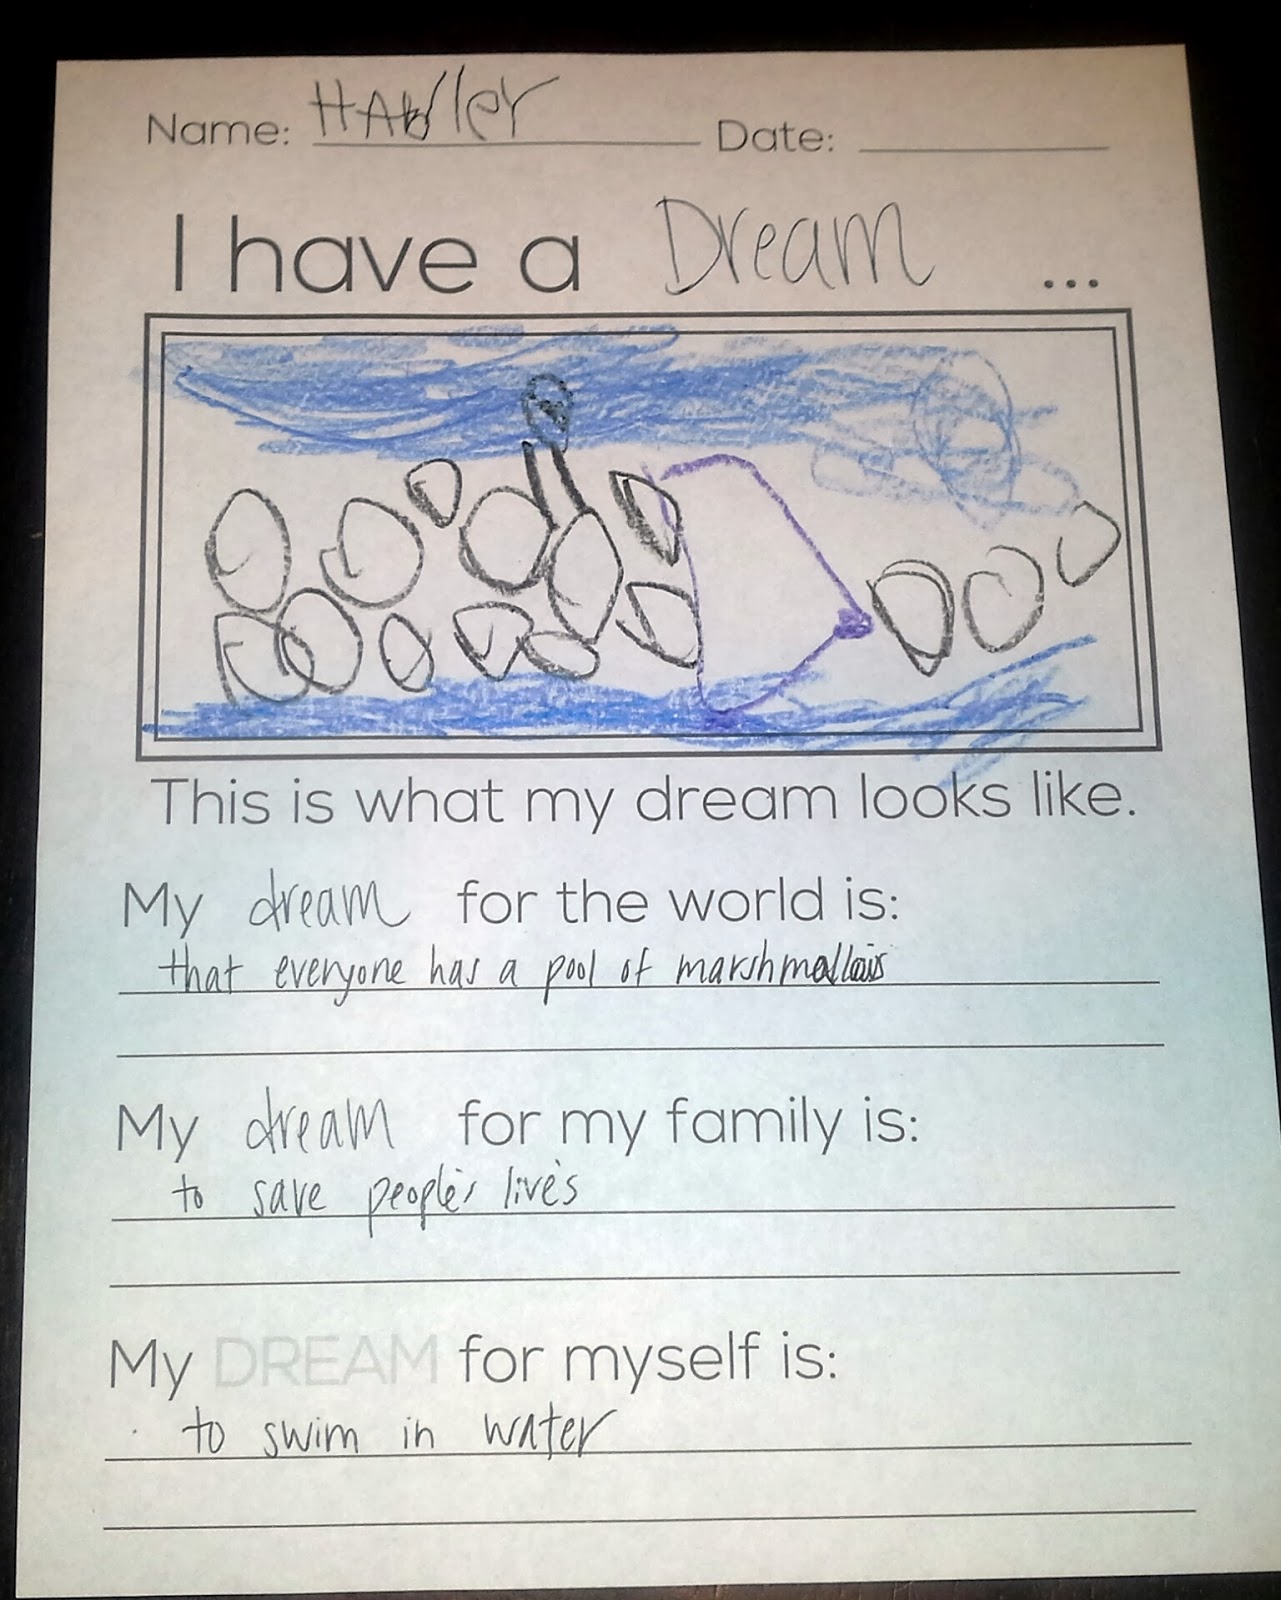 Name: HAWler Date:
I have a Dream ...
This is what my dream looks like.
My dream for the world is:
that everyone has a pool of marshmallows
My dream for my family is:
to save people's live's
My DREAM for myself is:
to swim in water